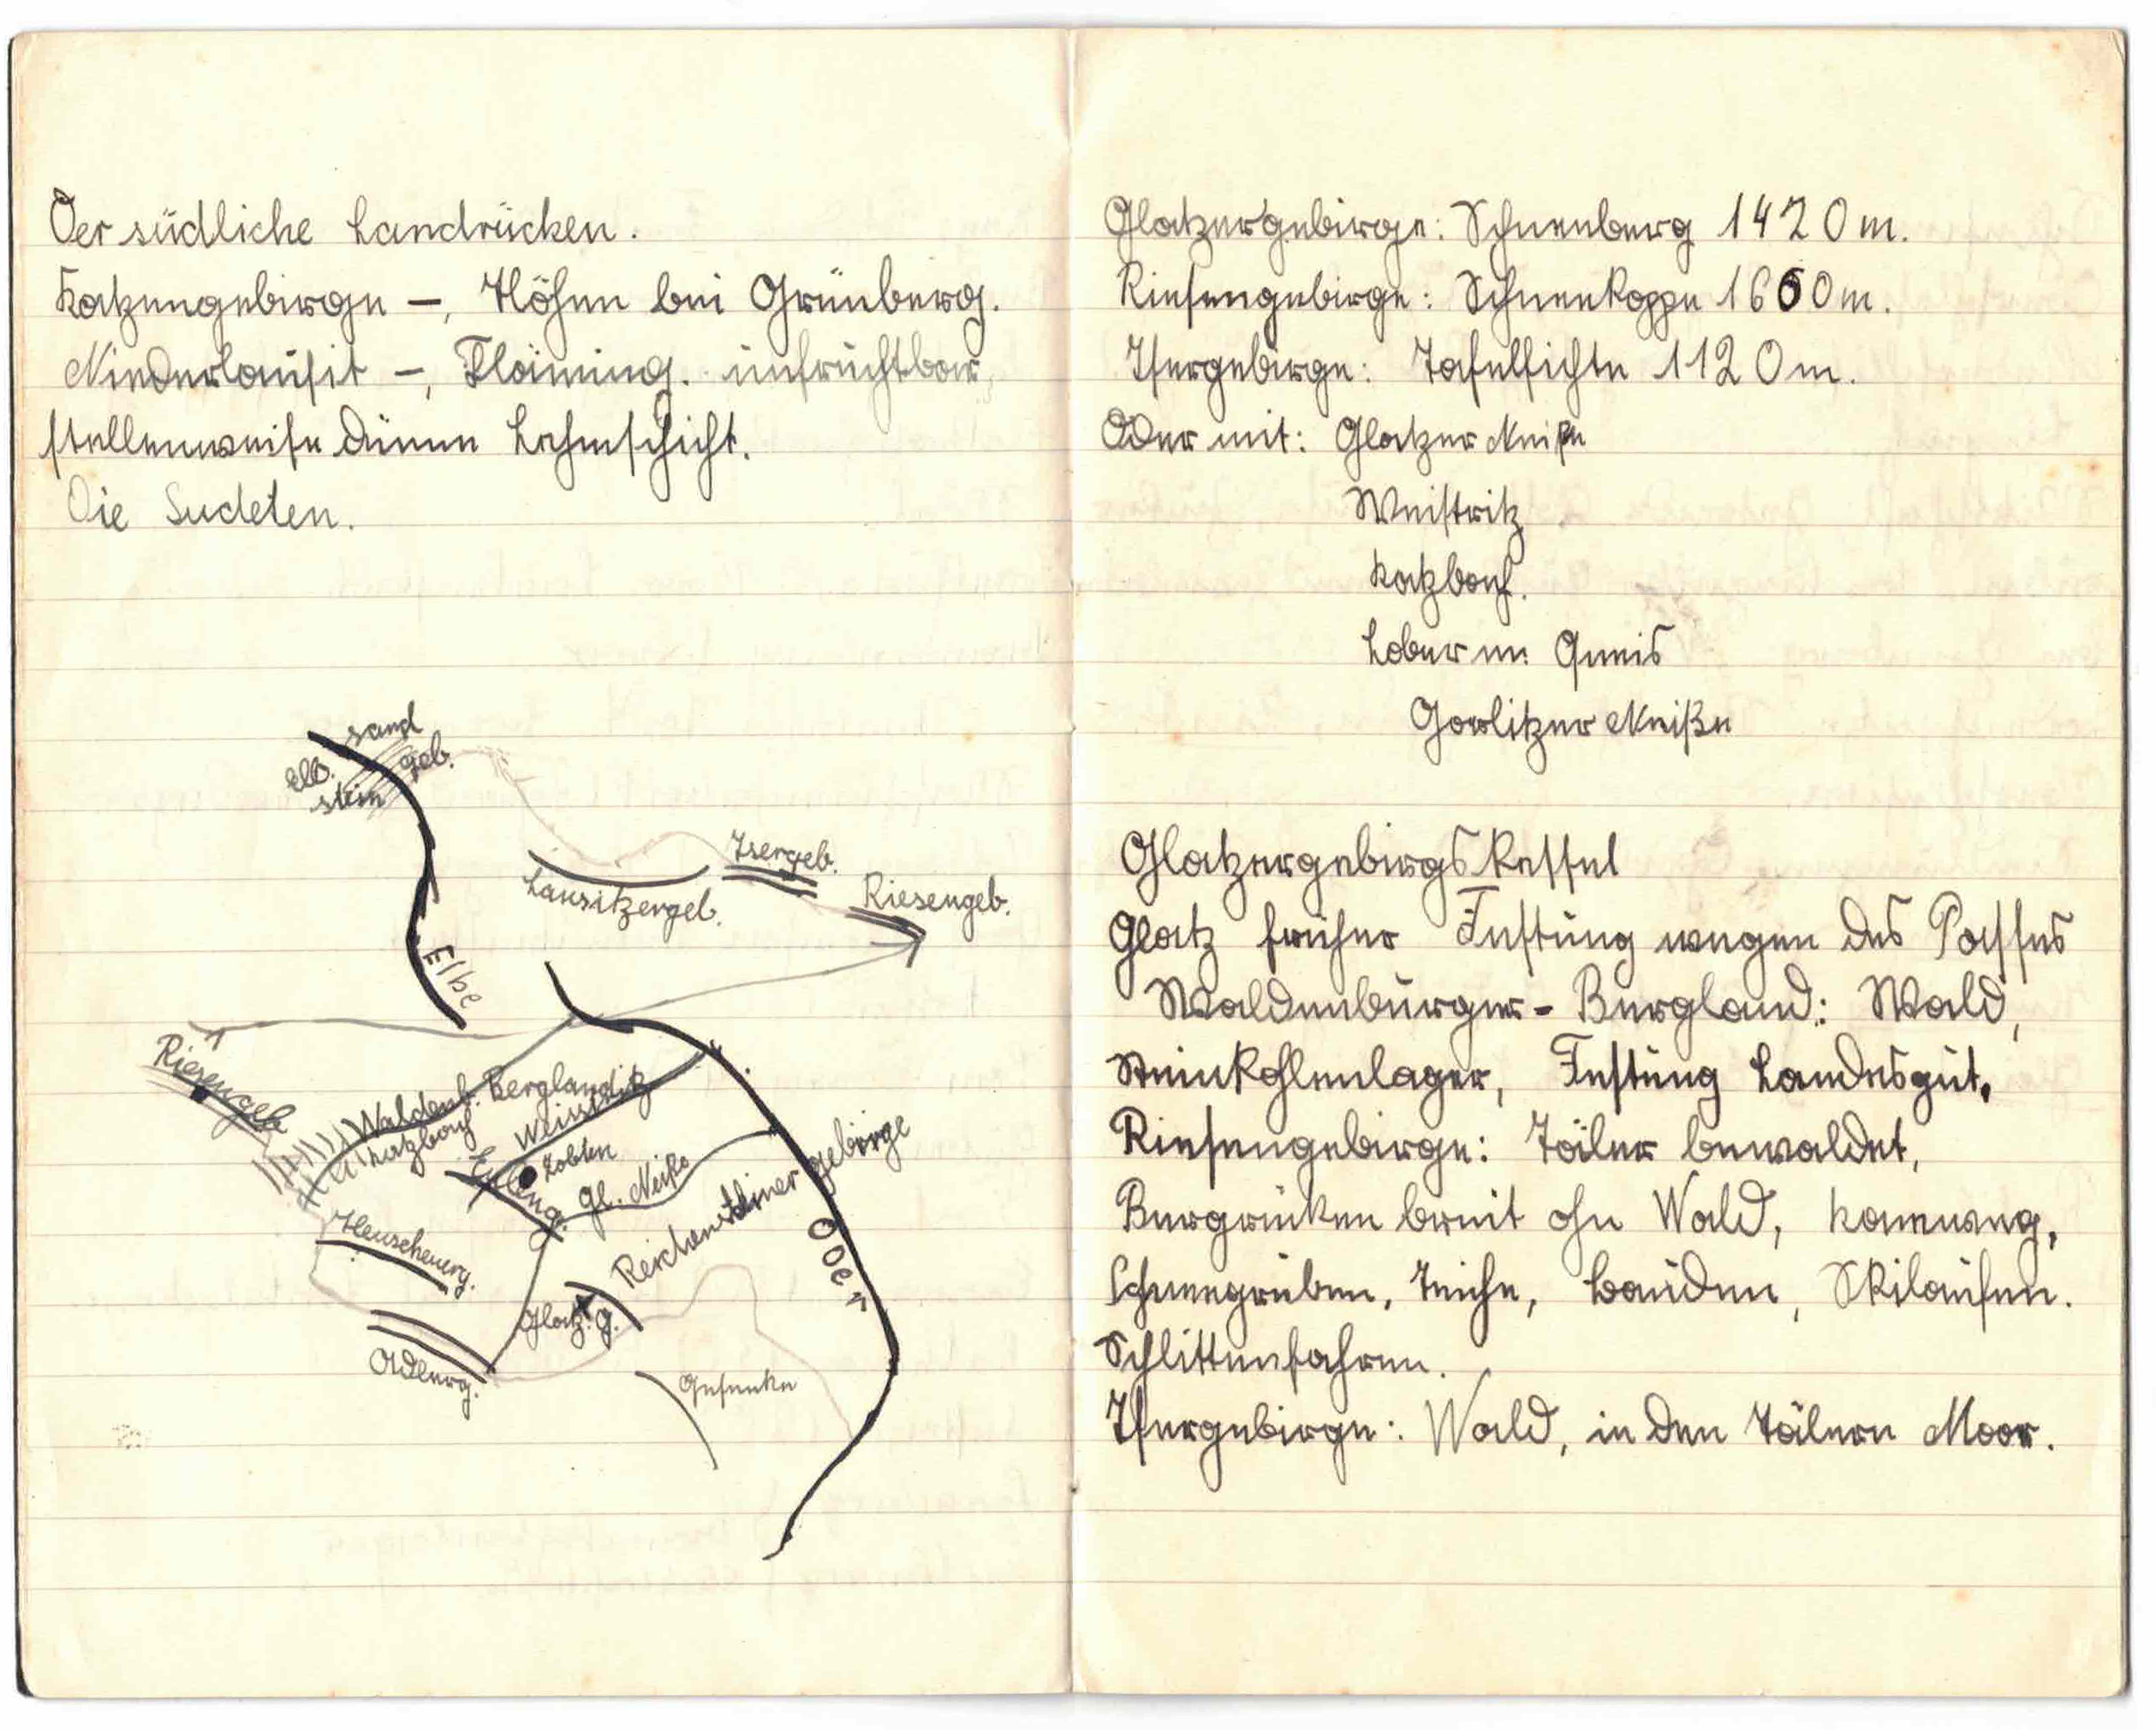 Der südliche Landrücken.
Katzengebirge –, Höhen bei Grünberg.
Niederlausit –, Fläming. unfruchtbar,
stellenweise dünne Lehmschicht.
Die Sudeten.
sand
Elb. geb.
stein
Isergeb.
Lausitzergeb.
Riesengeb.
Elbe
Riesengeb
Waldenb. Bergland
Katzbach
Weistritz
Zobten
Euleng.
Gl. Neiße
Reichensteinergebirge
Heuscheuerg.
Oder
Glatz. g.
Adlerg.
Gesenke
Glatzergebirge: Schneeberg 1420 m.
Riesengebirge: Schneekoppe 1600 m.
Isergebirge: Tafelfichte 1120 m.
Oder mit: Glatzer Neiße
Weistritz
Katzbach.
Bober m. Queis
Görlitzer Neiße
Glatzergebirgskessel
Glatz früher Festung wegen des Passes
Waldenburger-Bergland: Wald,
Steinkohlenlager, Festung Landesgut.
Riesengebirge: Täler bewaldet,
Bergrücken breit ohne Wald, Kammweg,
Schneegruben, Teiche, Bauden, Skilaufen.
Schlittenfahren.
Isergebirge: Wald, in den Tälern Moor.